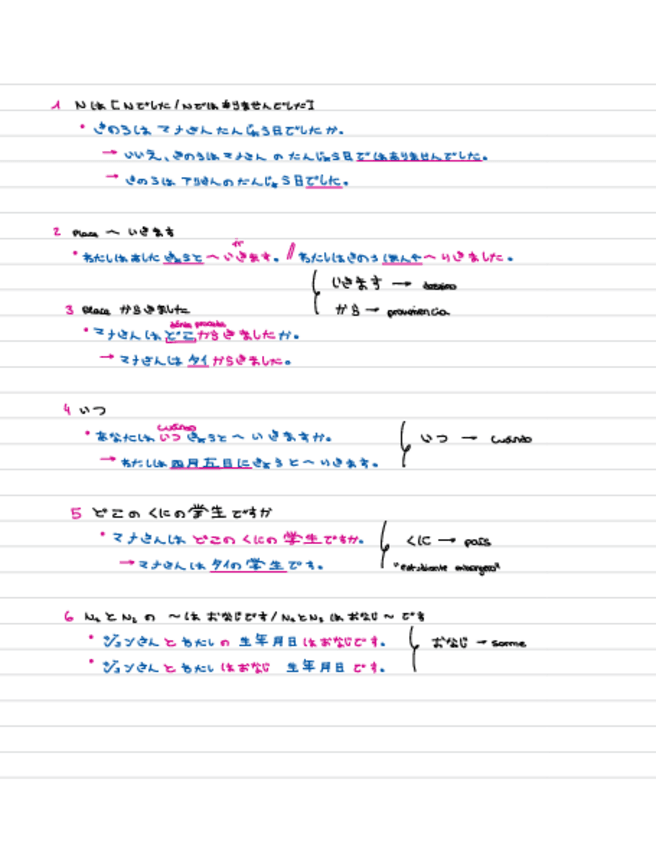 1 Nは [Nでした/Nではありませんでした]
• きのうは マナさん たんじょう日でしたか。
→ いいえ、きのうはマナさん の たんじょう日 ではありませんでした。
→ きのうは アリさんのたんじょう日でした。
2 Place へ いきます
• わたしは あした きょうと へ いきます。 // わたしは きのう へ いきました。
いきます →
3 Place から きました
から → proveniencia
• マナさん は どこ から き ましたか。
→ マナさんは タイ からきました。
4 いつ
cuándo
• あなたは いつ きょうと へ い きますか。
いつ → cuándo
→ わたしは 四月五日に きょうと へ いきます。
5 どこの くにの 学生 ですか
• マナさんは どこの くにの 学生ですか。
くに → país
→ マナさんは タイの 学生 です。
"estudiante extranjero"
6 N₁ と N₂ の ~は おなじです/N₁とN₂ は おなじ ~ です
• ジョンさん と わたし の 生年月日 はおなじです。
おなじ → same
• ジョンさん と わたし は おなじ 生年月日 です.